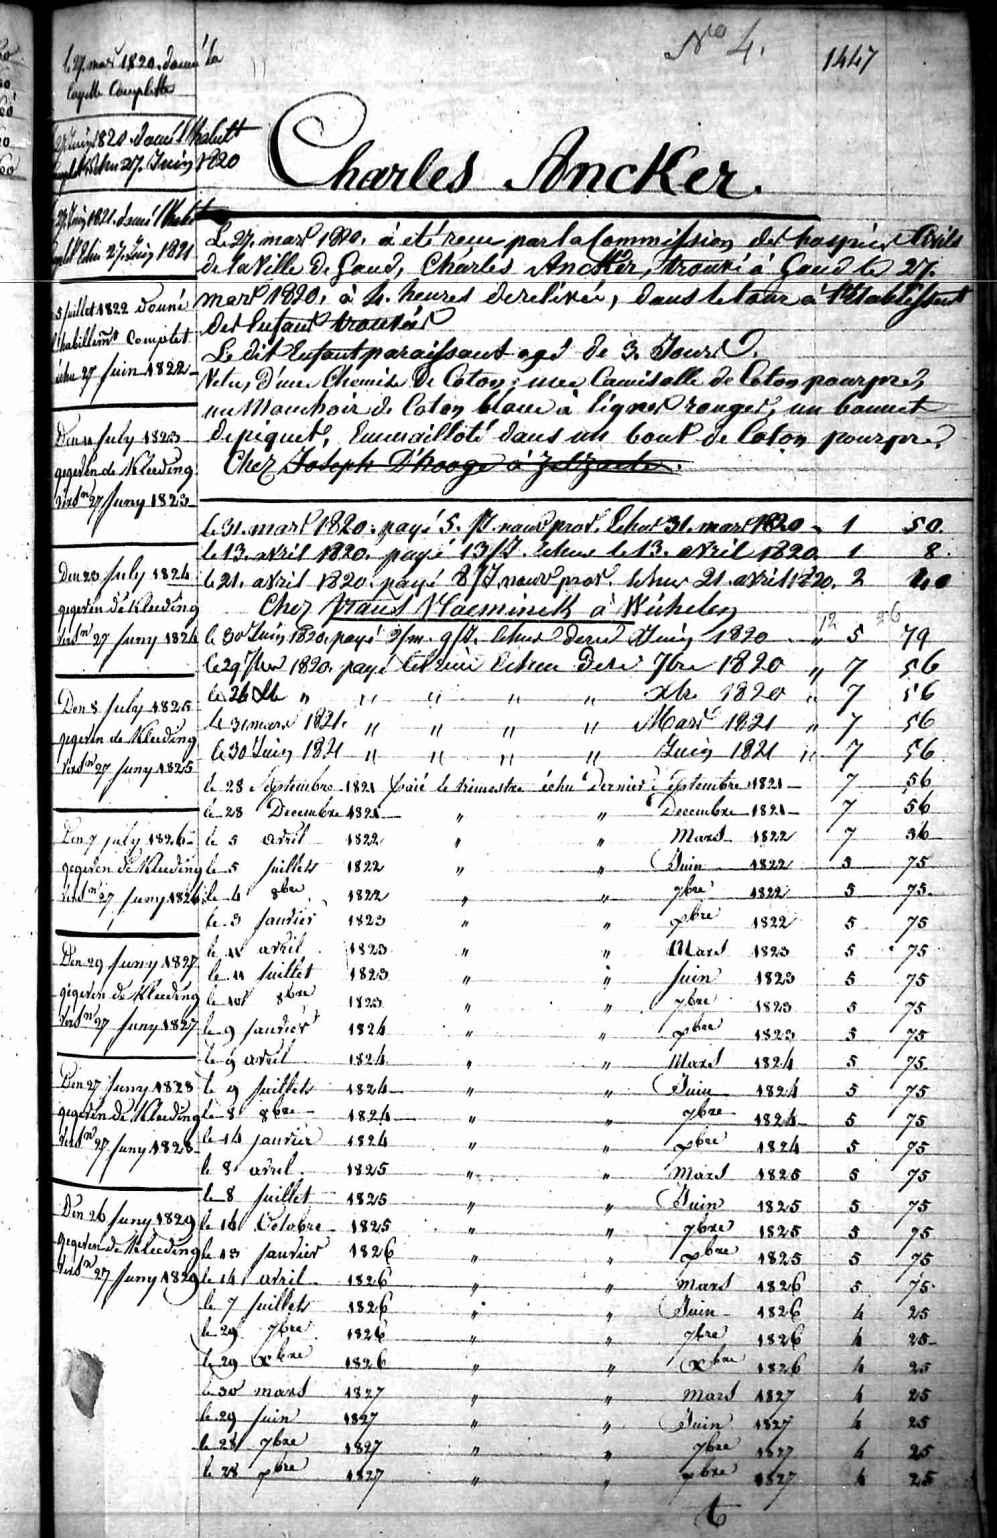 No 4.
1447
le 27 mars 1820. donné la
layette Complette
27 Juin 1820 donné l'habillt
Complet echu 27. Juin 1820
27 Juin 1821. donné l'habillt
Complet echu 27. Juin 1821
5 juillet 1822 donné
l'habillemt Complet
échu 27 juin 1822
Den 11 July 1823
gegeven de Kleeding
verst.n 27 Juny 1823
Den 23 July 1824
gegeven de Kleeding
verst.n 27 Juny 1824
Den 8 July 1825
gegeven de Kleeding
verst.n 27 Juny 1825
Den 7 July 1826
gegeven de Kleeding
verst.n 27 Juny 1826
Den 29 Juny 1827
gegeven de Kleeding
verst.n 27 Juny 1827
Den 27 Juny 1828
gegeven de Kleeding
verst.n 27 Juny 1828
Den 26 Juny 1829
gegeven de Kleeding
verst.n 27 Juny 1829
Charles Ancker.
Le 27. mars 1820. à été recu par la Commission des hospices Civils
de la Ville de Gand, Charles Ancker, trouvé à Gand le 27.
mars 1820, à 4. heures de relevée, dans le tour à l'Etablissemt
des Enfans trouvés
Le dit Enfant paraissant agé de 3. Jours.
Vetu, d'une Chemise de Coton, une Camisolle de Coton pourpre,
un Mouchoir de Coton blanc à lignes rouges, un bonnet
de piquet, Emmailloté dans un bout de Coton pourpre,
Chez Joseph D'hooge à Zelzaete.
le 31. mars 1820. payé 5. Echus 31. mars 1820 1 50.
le 13. avril 1820. payé 13 Echus le 13. avril 1820 1 8.
le 21. avril 1820. payé 8 Echus 21. avril 1820. 2 40
Chez Frans Vlaeminck à Wichelen
12 26
le 30 Juin 1820. payé 2/m. 9/J. Echus dern Juin 1820 " 5 79
le 29 7bre 1820. payé Echus dern 7bre 1820 " 7 56
le 26 Xbre " " " " " Xbre 1820 " 7 56
le 31 mars 1821. " " " " Mars 1821 " 7 56
le 30 Juin 1821 " " " " Juin 1821 " 7 56
le 28 Septembre 1821 payé le trimestre échu Dernier Septembre 1821 7 56
le 28 Decembre 1821 " " Decembre 1821 7 56
le 5 avril 1822 " " Mars 1822 7 56
le 5 Juillets 1822 " " Juin 1822 5 75
le 4 8bre 1822 " " 7bre 1822 5 75
le 3 Janvier 1823 " " Xbre 1822 5 75
le 11 avril 1823 " " Mars 1823 5 75
le 11 Juillet 1823 " " Juin 1823 5 75
le 10 8bre 1823 " " 7bre 1823 5 75
le 9 Janvier 1824 " " Xbre 1823 5 75
le 9 avril 1824 " " Mars 1824 5 75
le 9 Juillets 1824 " " Juin 1824 5 75
le 8 8bre 1824 " " 7bre 1824 5 75
le 14 Janvier 1824 " " Xbre 1824 5 75
le 8 avril 1825 " " Mars 1825 5 75
le 8 Juillet 1825 " " Juin 1825 5 75
le 16 Octobre 1825 " " 7bre 1825 5 75
le 13 Janvier 1826 " " Xbre 1825 5 75
le 14 avril 1826 " " Mars 1826 5 75
le 7 Juillets 1826 " " Juin 1826 4 25
le 29 7bre 1826 " " 7bre 1826 4 25
le 29 Xbre 1826 " " Xbre 1826 4 25
le 30 mars 1827 " " Mars 1827 4 25
le 29 Juin 1827 " " Juin 1827 4 25
le 28 7bre 1827 " " 7bre 1827 4 25
le 28 Xbre 1827 " " Xbre 1827 4 25